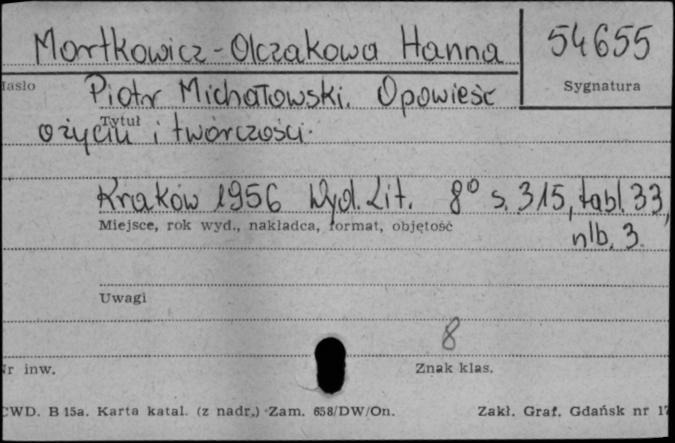 Mortkowicz-Olczakowa Hanna 54655
Hasło Sygnatura
Piotr Michałowski. Opowieść
Tytuł
o życiu i twórczości.
Kraków 1956 Wyd. Lit. 8° s. 315, tabl. 33,
Miejsce, rok wyd., nakładca, format, objętość
nlb. 3.
Uwagi
8
Nr inw. Znak klas.
CWD. B 15a. Karta katal. (z nadr.) Zam. 658/DW/On. Zakł. Graf. Gdańsk nr 17